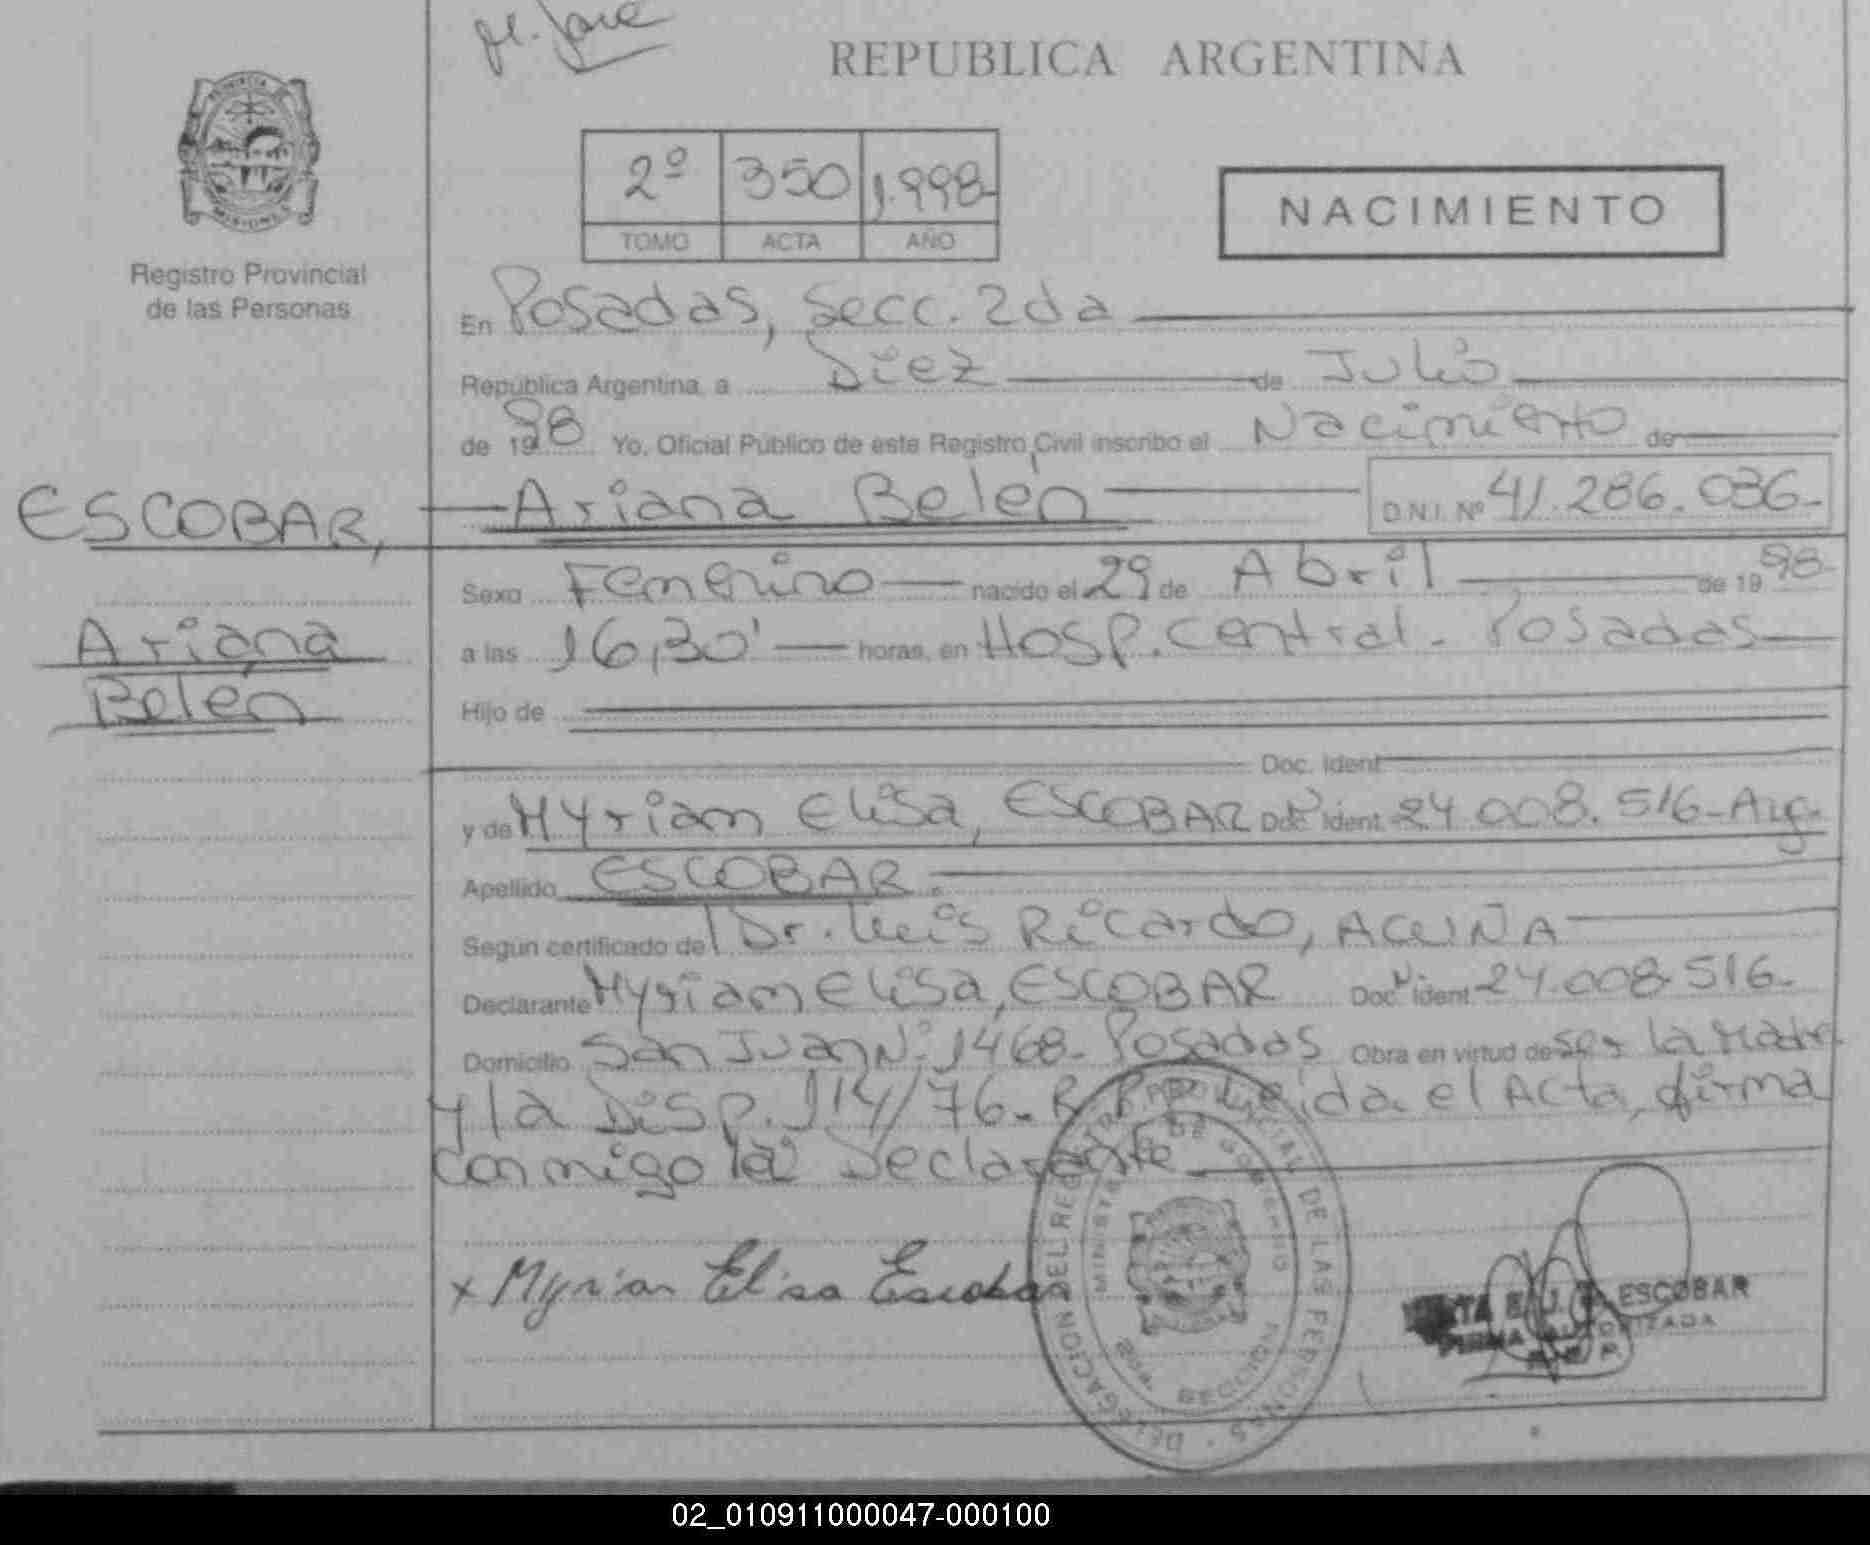 M. José
REPUBLICA ARGENTINA
2º 350 1.998-
TOMO ACTA AÑO
NACIMIENTO
Registro Provincial
de las Personas
En Posadas, Secc. 2da
República Argentina, a Diez de Julio
de 1998 Yo, Oficial Público de este Registro Civil inscribo el Nacimiento de
ESCOBAR, Ariana Belén D.N.I. Nº 41.286.036-
Sexo Femenino nacido el 29 de Abril de 1998-
Ariana
Belén
a las 16,30' horas, en Hosp. Central - Posadas
Hijo de
Doc. Ident
y de Myriam Elisa, ESCOBAR Doc. Ident. 24.008.516-Arg.
Apellido ESCOBAR.
Según certificado de Dr. Luis Ricardo, ACUÑA
Declarante Myriam Elisa, ESCOBAR Doc. Ident. 24.008.516-
Domicilio San Juan Nº 1468- Posadas Obra en virtud de ser la Madre
y la Disp. 114/76- R.P.P. Leida el Acta, firma
conmigo la Declarante
x Myrian Elisa Escobar
DELEGACION DEL REGISTRO PROVINCIAL DE LAS PERSONAS
MINISTERIO DE GOBIERNO
SECCION
ESCOBAR
FIRMA AUTORIZADA
02_010911000047-000100